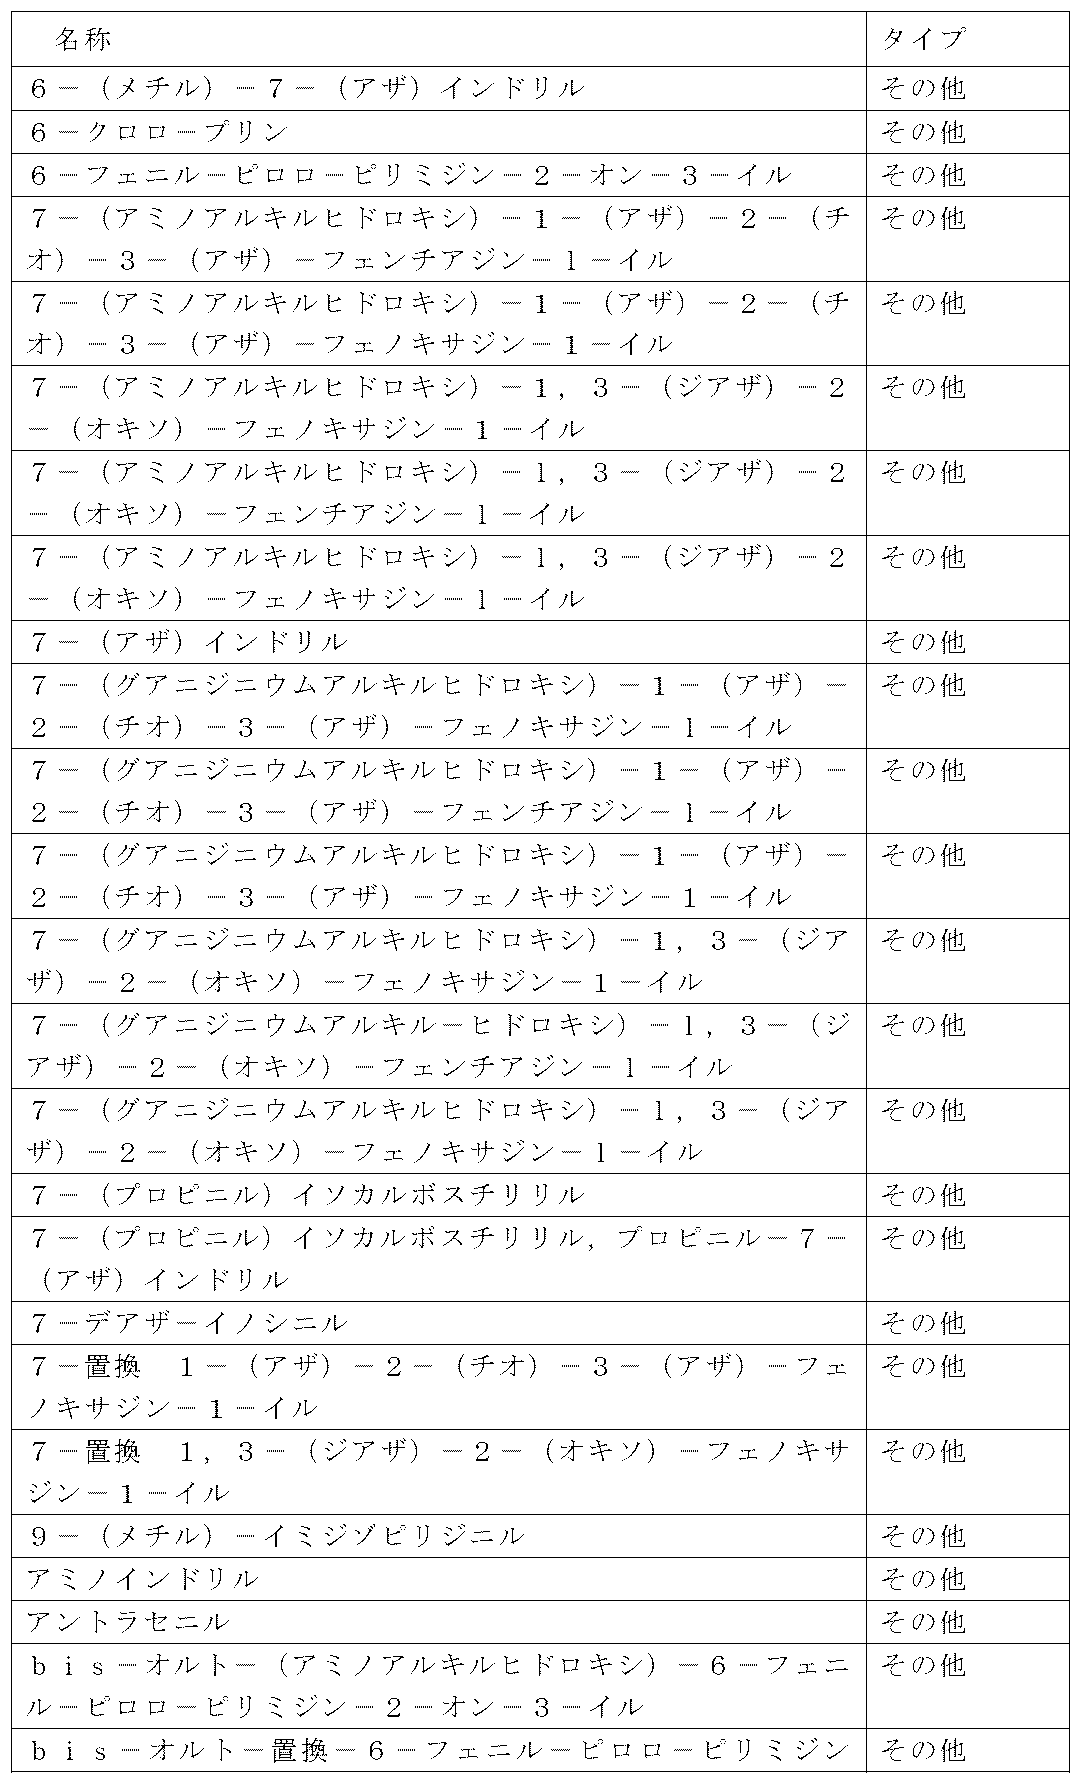 名称　タイプ
６－（メチル）－７－（アザ）インドリル　その他
６－クロロ－プリン　その他
６－フェニル－ピロロ－ピリミジン－２－オン－３－イル　その他
７－（アミノアルキルヒドロキシ）－１－（アザ）－２－（チ　その他
オ）－３－（アザ）－フェンチアジン－ｌ－イル
７－（アミノアルキルヒドロキシ）－１－（アザ）－２－（チ　その他
オ）－３－（アザ）－フェノキサジン－１－イル
７－（アミノアルキルヒドロキシ）－１，３－（ジアザ）－２　その他
－（オキソ）－フェノキサジン－１－イル
７－（アミノアルキルヒドロキシ）－ｌ，３－（ジアザ）－２　その他
－（オキソ）－フェンチアジン－ｌ－イル
７－（アミノアルキルヒドロキシ）－ｌ，３－（ジアザ）－２　その他
－（オキソ）－フェノキサジン－ｌ－イル
７－（アザ）インドリル　その他
７－（グアニジニウムアルキルヒドロキシ）－１－（アザ）－　その他
２－（チオ）－３－（アザ）－フェノキサジン－ｌ－イル
７－（グアニジニウムアルキルヒドロキシ）－１－（アザ）－　その他
２－（チオ）－３－（アザ）－フェンチアジン－ｌ－イル
７－（グアニジニウムアルキルヒドロキシ）－１－（アザ）－　その他
２－（チオ）－３－（アザ）－フェノキサジン－１－イル
７－（グアニジニウムアルキルヒドロキシ）－１，３－（ジア　その他
ザ）－２－（オキソ）－フェノキサジン－１－イル
７－（グアニジニウムアルキル－ヒドロキシ）－ｌ，３－（ジ　その他
アザ）－２－（オキソ）－フェンチアジン－ｌ－イル
７－（グアニジニウムアルキルヒドロキシ）－ｌ，３－（ジア　その他
ザ）－２－（オキソ）－フェノキサジン－ｌ－イル
７－（プロピニル）イソカルボスチリリル　その他
７－（プロピニル）イソカルボスチリリル，プロピニル－７－　その他
（アザ）インドリル
７－デアザ－イノシニル　その他
７－置換　１－（アザ）－２－（チオ）－３－（アザ）－フェ　その他
ノキサジン－１－イル
７－置換　１，３－（ジアザ）－２－（オキソ）－フェノキサ　その他
ジン－１－イル
９－（メチル）－イミジゾピリジニル　その他
アミノインドリル　その他
アントラセニル　その他
ｂｉｓ－オルト－（アミノアルキルヒドロキシ）－６－フェニ　その他
ル－ピロロ－ピリミジン－２－オン－３－イル
ｂｉｓ－オルト－置換－６－フェニル－ピロロ－ピリミジン　その他